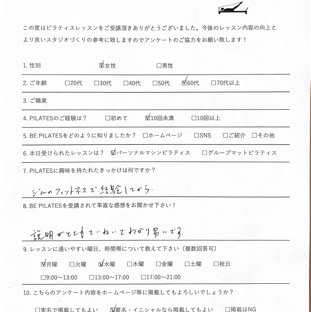 この度はピラティスレッスンをご受講頂きありがとうございました。今後のレッスン内容の向上と
より良いスタジオづくりの参考に致しますのでアンケートのご協力をお願い致します！
1. 性別 ☑女性 □男性
2. ご年齢 □20代 □30代 □40代 □50代 ☑60代 □70代以上
3. ご職業
4. PILATESのご経験は？ □初めて ☑10回未満 □10回以上
5. BE PILATESをどのように知りましたか？ □ホームページ □SNS □ご紹介 □その他
6. 本日受けられたレッスンは？ ☑パーソナルマシンピラティス □グループマットピラティス
7. PILATESに興味を持たれたきっかけは何ですか？
ジムのフィットネスで経験してから。
8. BE PILATESを受講されて率直な感想をお聞かせ下さい！
説明がとてもていねいでわかり易いです。
9. レッスンに通いやすい曜日、時間帯について教えて下さい（複数回答可）
☑月曜 □火曜 ☑水曜 □木曜 □金曜 □土曜 □祝日
□9:00〜13:00 □13:00〜17:00 □17:00〜21:00
10. こちらのアンケート内容をホームページ等に掲載してもよろしいでしょうか？
□実名で掲載してもよい ☑匿名・イニシャルなら掲載してもよい □掲載はNG